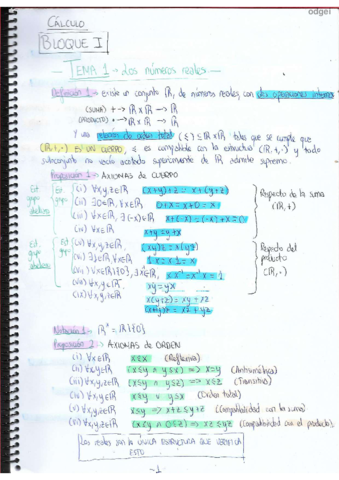 odgei
CÁLCULO
BLOQUE I
TEMA 1 - Los números reales
Definición 1 - Existe un conjunto ℝ, de números reales, con dos operaciones internas
(SUMA) + → ℝ x ℝ → ℝ
(PRODUCTO) • → ℝ x ℝ → ℝ
Y una relación de orden total (≤) ⊆ ℝ x ℝ tales que se cumple que
(ℝ, +, ·) ES UN CUERPO, ≤ es compatible con la estructura (ℝ, +, ·) y todo
subconjunto no vacío acotado superiormente de ℝ admite supremo.
Proposición 1 - AXIOMAS DE CUERPO
(i) ∀x,y,z∈ℝ (x+y)+z = x+(y+z)
(ii) ∃0∈ℝ, ∀x∈ℝ 0+x = x+0 = x
(iii) ∀x∈ℝ, ∃(-x)∈ℝ x+(-x) = (-x)+x = 0
(iv) ∀x,y∈ℝ x+y = y+x
Respecto de la suma
(ℝ, +)
(v) ∀x,y,z∈ℝ (xy)z = x(yz)
(vi) ∃1∈ℝ, ∀x∈ℝ 1·x = x·1 = x
(vii) ∀x∈ℝ\{0}, ∃x⁻¹∈ℝ x·x⁻¹ = x⁻¹·x = 1
(viii) ∀x,y∈ℝ xy = yx
(ix) ∀x,y,z∈ℝ x(y+z) = xy + xz
Respecto del
producto
(ℝ, ·)
Notación 1 - ℝ* = ℝ\{0}
Proposición 2 - AXIOMAS DE ORDEN
(i) ∀x∈ℝ x≤x (Reflexiva)
(ii) ∀x,y∈ℝ (x≤y ∧ y≤x) => x=y (Antisimétrica)
(iii) ∀x,y,z∈ℝ (x≤y ∧ y≤z) => x≤z (Transitiva)
(iv) ∀x,y∈ℝ x≤y ∨ y≤x (Orden total)
(v) ∀x,y,z∈ℝ x≤y => x+z≤y+z (Compatibilidad con la suma)
(vi) ∀x,y,z∈ℝ (x≤y ∧ 0≤z) => xz≤yz (Compatibilidad con el producto)
Los reales son la ÚNICA ESTRUCTURA QUE VERIFICA
ESTO
-1-